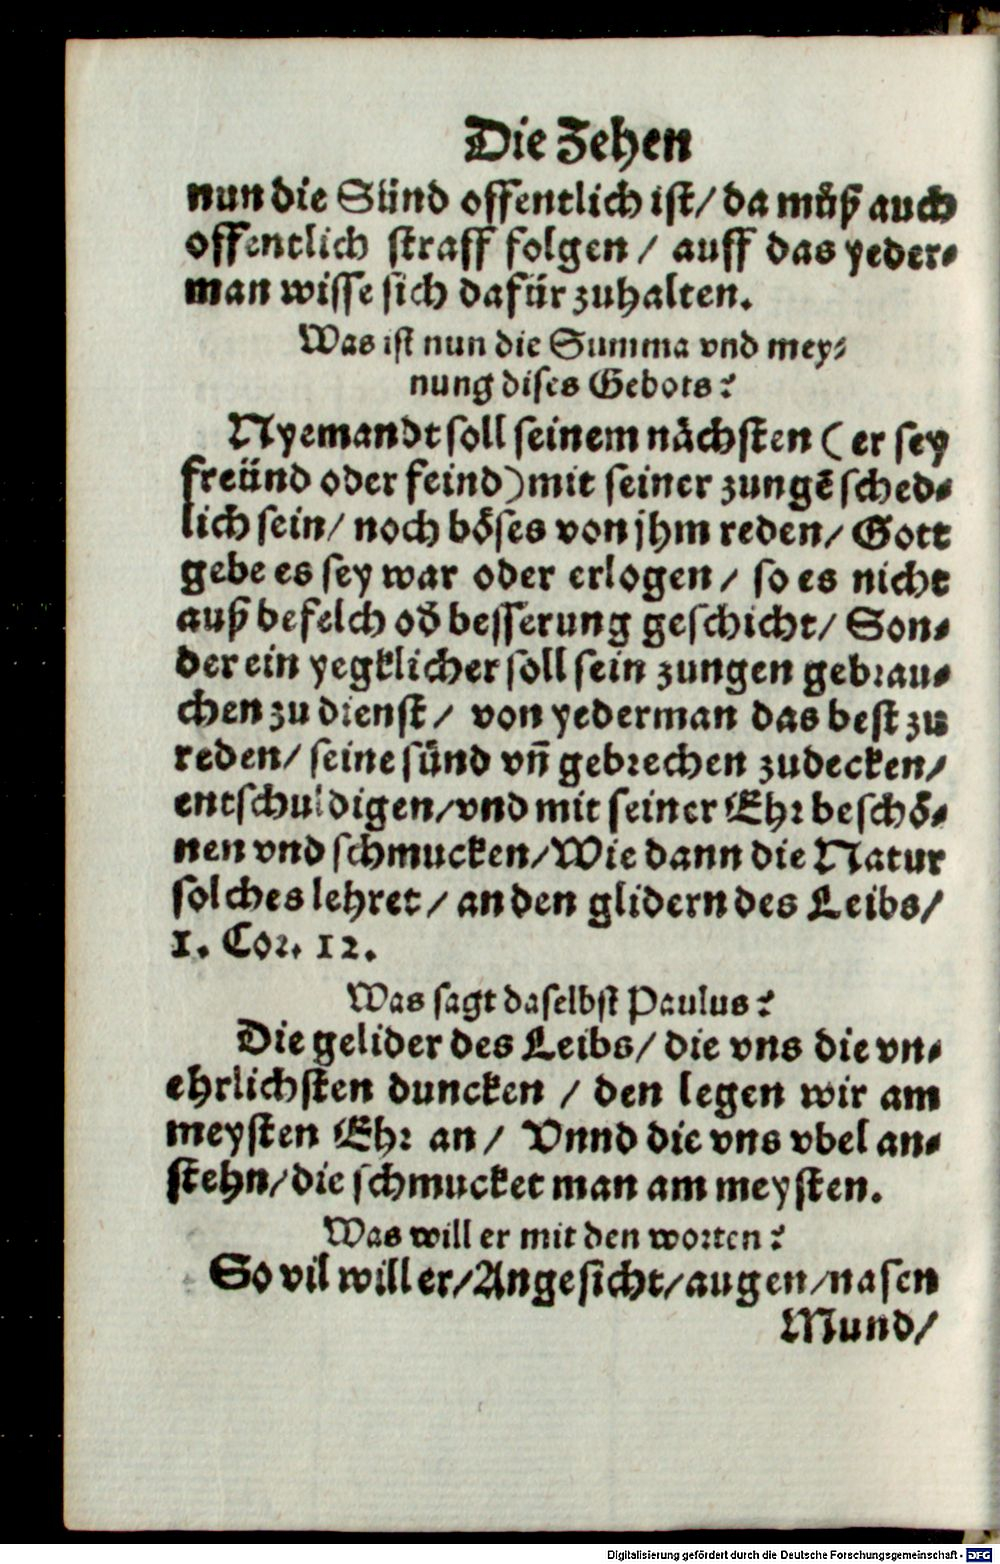 Die Zehen
nun die Sünd offentlich ist/ da muͦß auch
offentlich straff folgen / auff das yeder⸗
man wisse sich dafür zuhalten.
Was ist nun die Summa vnd mey⸗
nung dises Gebots?
Nyemandt soll seinem nächsten (er sey
freünd oder feind) mit seiner zungē sched⸗
lich sein/ noch böses von jhm reden/ Gott
gebe es sey war oder erlogen / so es nicht
auß befelch oð besserung geschicht/ Son⸗
der ein yegklicher soll sein zungen gebrau⸗
chen zu dienst / von yederman das best zu
reden/ seine sünd vn̄ gebrechen zudecken/
entschuldigen/vnd mit seiner Ehr beschö⸗
nen vnd schmucken/Wie dann die Natur
solches lehret / an den glidern des Leibs/
1. Cor. 12.
Was sagt daselbst Paulus?
Die gelider des Leibs/ die vns die vn⸗
ehrlichsten duncken / den legen wir am
meysten Ehr an / Vnnd die vns vbel an⸗
stehn/die schmucket man am meysten.
Was will er mit den worten?
So vil will er/Angesicht/augen/nasen
Mund/
Digitalisierung gefördert durch die Deutsche Forschungsgemeinschaft - DFG